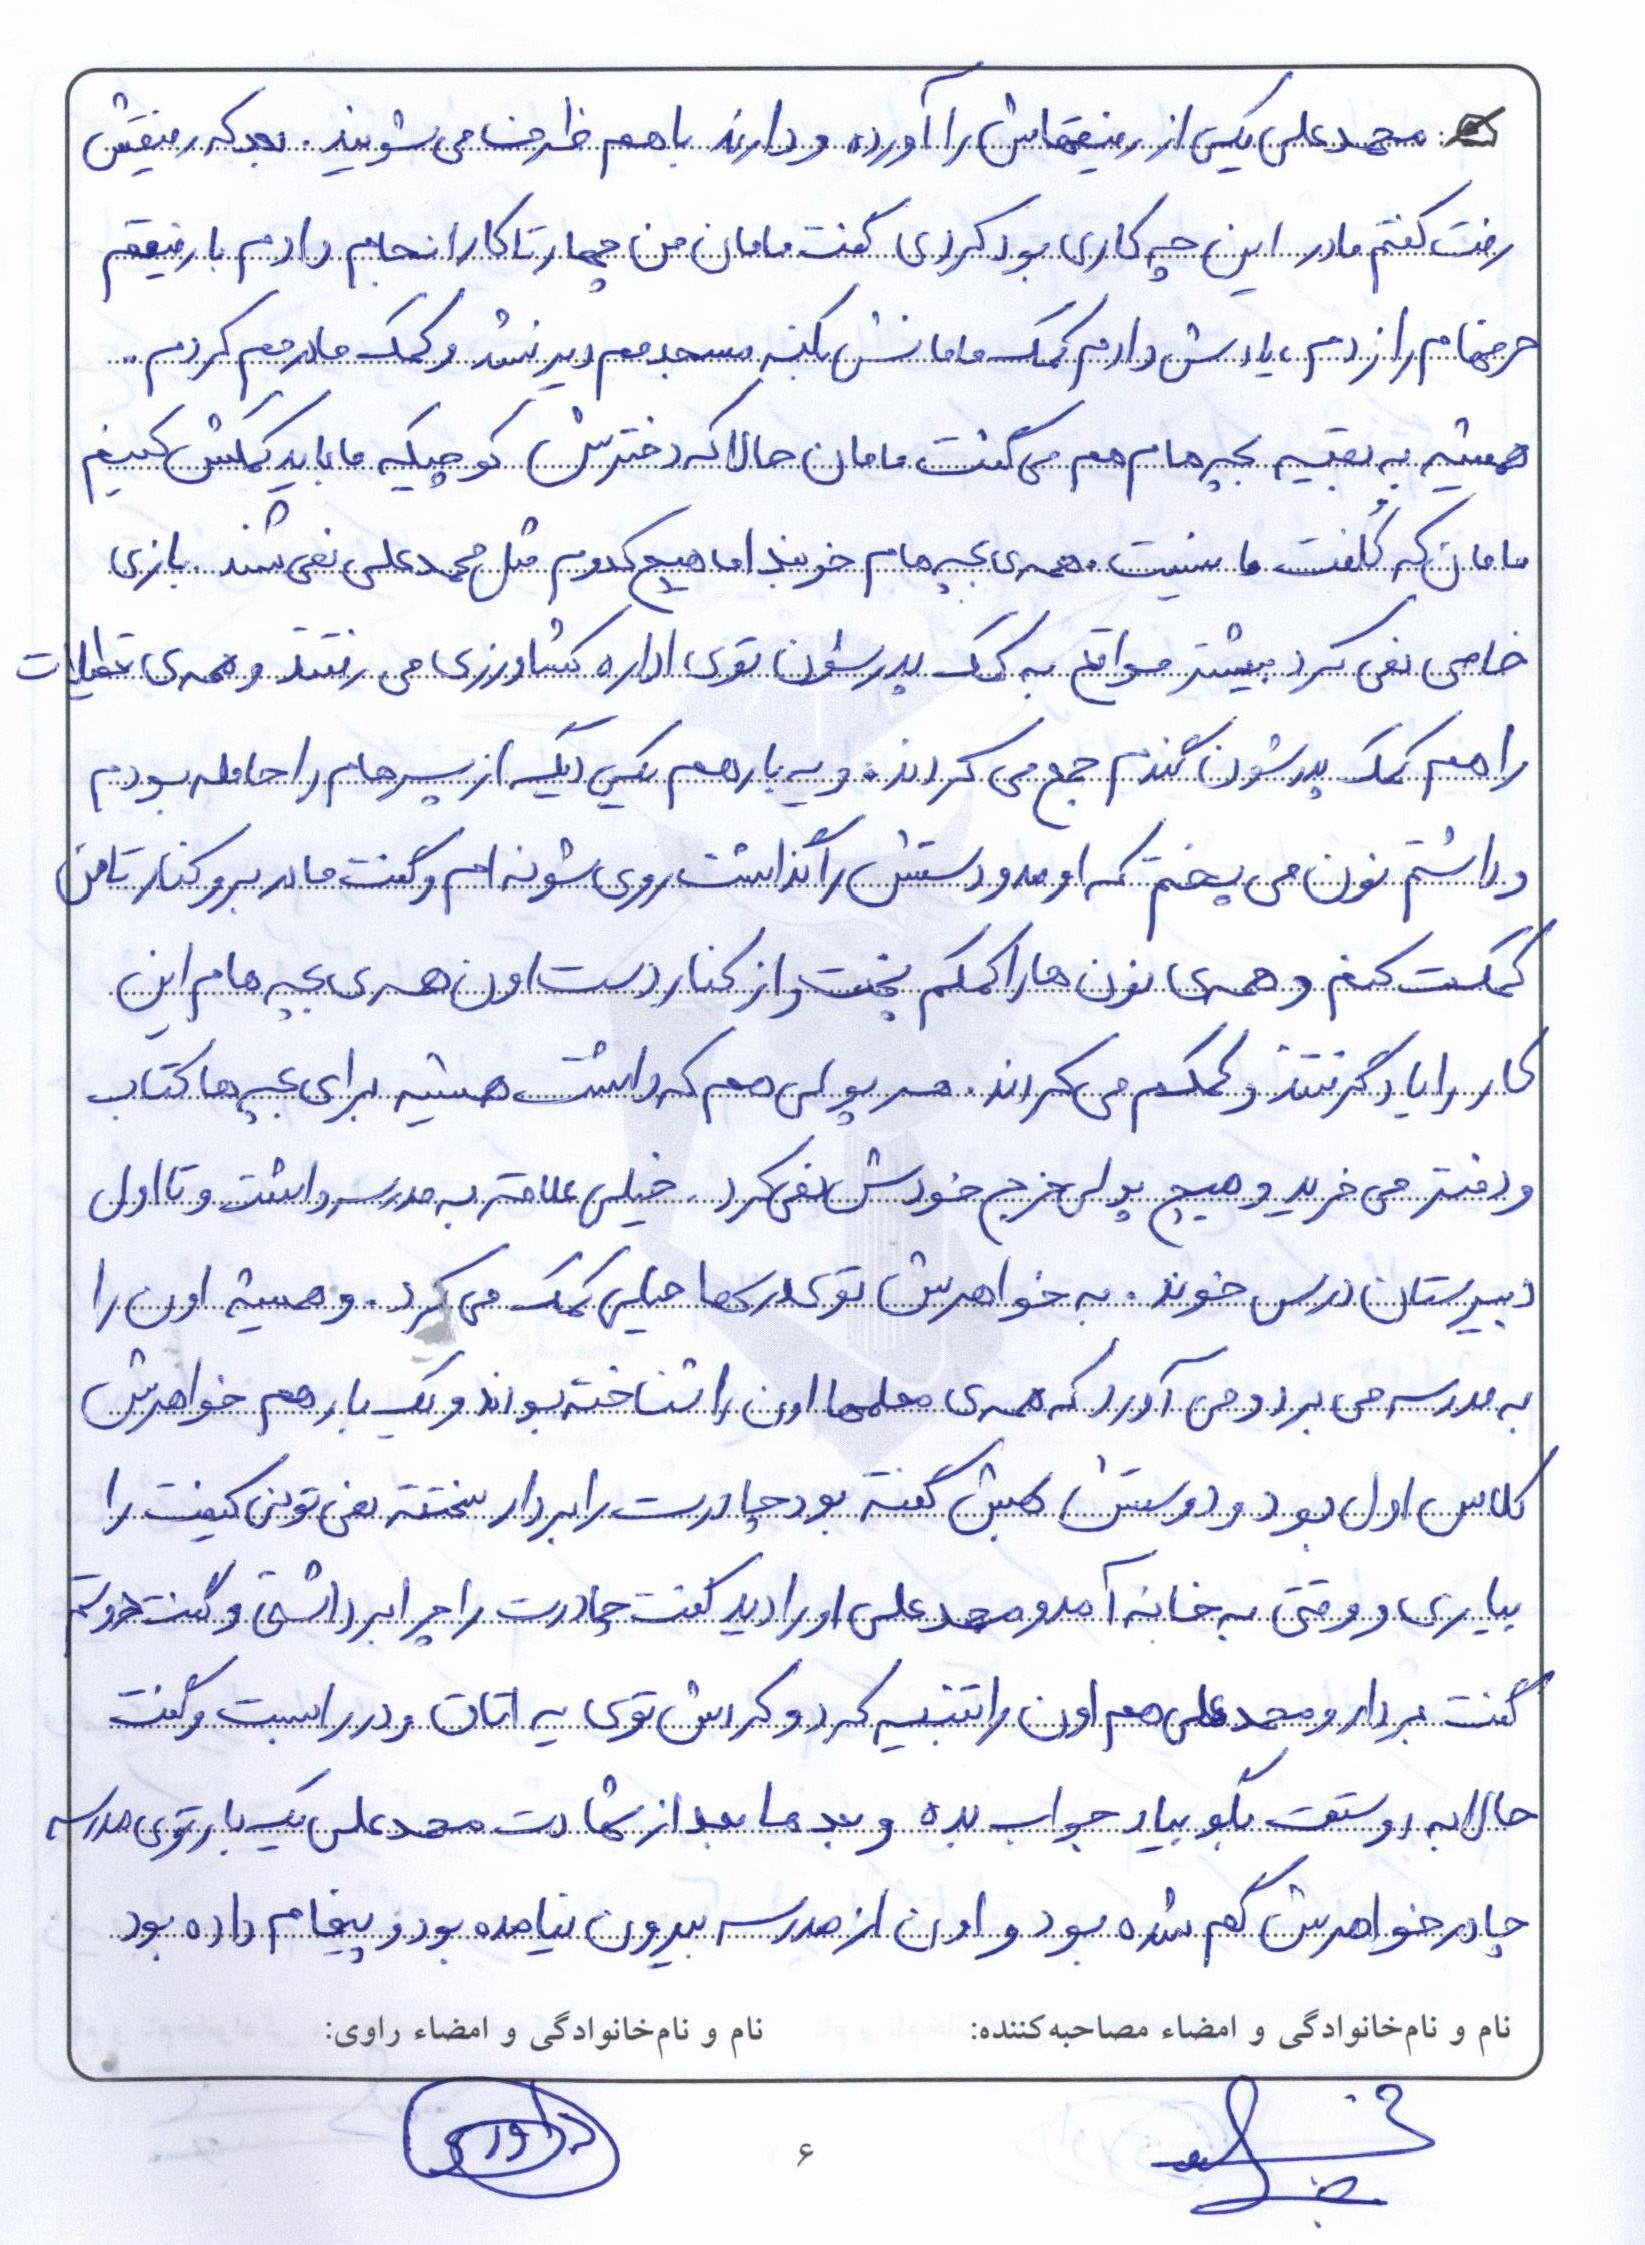 محمدعلی یکی از رفیقهاش را آورده و دارند با هم ظرف می شویند. بعد که رفیقش
رفت گفتم مادر این چه کاری بود کردی گفت مامان من چهار تا کار انجام دادم با رفیقم
حرفهام را زدم، یادش دادم کمک مامانش بکنه مسجدمم دیر نشد و کمک مادرمم کردم..
همیشه به بقیه بچه هام هم می گفت مامان حالا که دخترش کوچیکه ما باید کمکش کنیم
مامان که کُلفت ما نیست. همه ی بچه هام خوبند اما هیچ کدوم مثل محمدعلی نمی شند. بازی
خاصی نمی کرد بیشتر مواقع به کمک پدرشون توی اداره کشاورزی می رفتند و همه ی تعطیلات
را هم کمک پدرشون گندم جمع می کردند. و یه بار هم یکی دیگه از پسرهام را حامله بودم
و داشتم نون می پختم که اومد و دستش را گذاشت روی شونه ام و گفت مادر برو کنار تا من
کمکت کنم و همه ی نون ها را کمکم پخت و از کنار دست اون همه ی بچه هام این
کار را یاد گرفتند و کمکم می کردند. هر پولی هم که داشت همیشه برای بچه ها کتاب
و دفتر می خرید و هیچ پولی خرج خودش نمی کرد. خیلی علاقه به مدرسه داشت و تا اول
دبیرستان درس خوند. به خواهرش توی درسها خیلی کمک می کرد. و همیشه اون را
به مدرسه می برد و می آورد که همه ی معلمها اون را شناخته بودند و یک بار هم خواهرش
کلاس اول بود و دوستش بهش گفته بود چادرت را بردار سختته نمی تونی کیفت را
بیاری و وقتی به خانه آمد و محمدعلی او را دید گفت چادرت را چرا برداشتی و گفت دوستم
گفت بردار و محمدعلی هم اون را تنبیه کرد و کردش توی یه اتاق و در را بست و گفت
حالا به دوستت بگو بیاد جواب بده و بعدها بعد از شهادت محمدعلی یک بار توی مدرسه
چادر خواهرش گم شده بود و اون از مدرسه بیرون نیامده بود و پیغام داده بود
نام و نام‌خانوادگی و امضاء مصاحبه‌کننده:
نام و نام‌خانوادگی و امضاء راوی:
۶